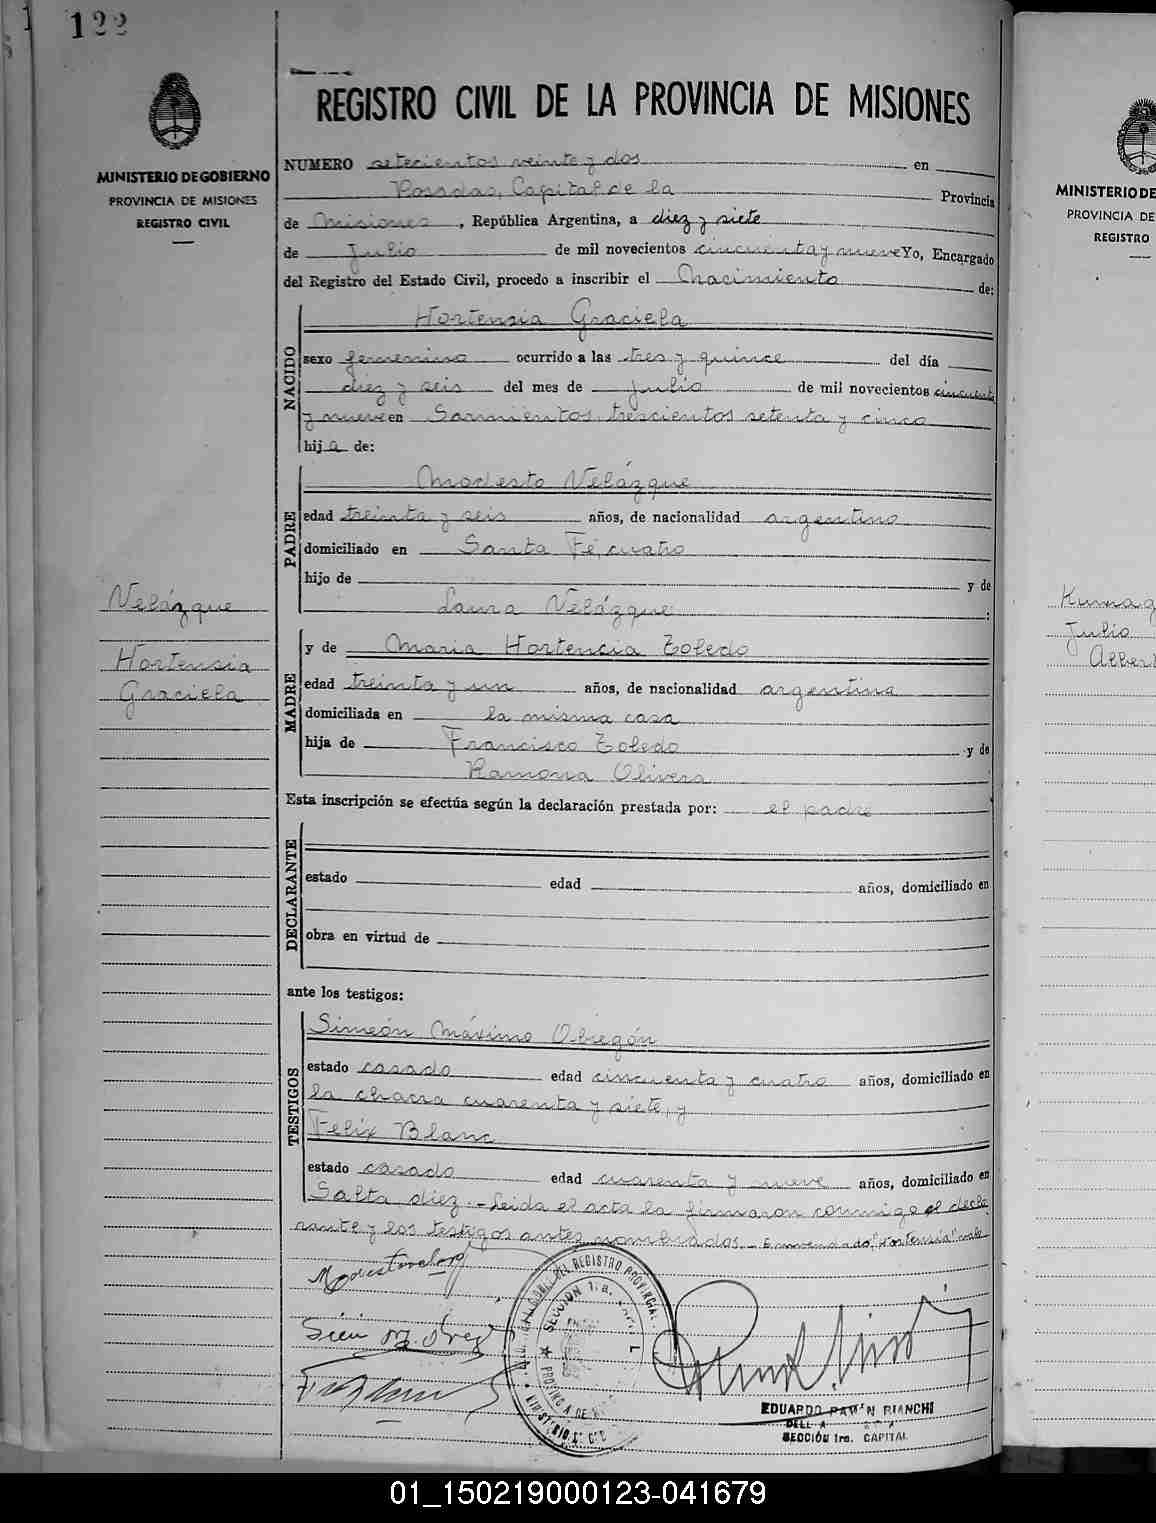 122
MINISTERIO DE GOBIERNO
PROVINCIA DE MISIONES
REGISTRO CIVIL
REGISTRO CIVIL DE LA PROVINCIA DE MISIONES
NUMERO setecientos veinte y dos en
Posadas, Capital de la Provincia
de Misiones, República Argentina, a diez y siete
de Julio de mil novecientos cincuenta y nueve Yo, Encargado
del Registro del Estado Civil, procedo a inscribir el Nacimiento de:
NACIDO
Hortensia Graciela
sexo femenino ocurrido a las tres y quince del día
diez y seis del mes de julio de mil novecientos cincuenta
y nueve en Sarmientos, trescientos setenta y cinco
hija de:
PADRE
Modesto Velázque
edad treinta y seis años, de nacionalidad argentino
domiciliado en Santa Fé, cuatro
hijo de y de
Laura Velázque :
Velázque
Hortensia
Graciela
MADRE
y de Maria Hortencia Toledo
edad treinta y un años, de nacionalidad argentina
domiciliada en la misma casa
hija de Francisco Toledo y de
Ramona Olivera
Esta inscripción se efectúa según la declaración prestada por: el padre
DECLARANTE
estado edad años, domiciliado en
obra en virtud de
ante los testigos:
TESTIGOS
Simeón Máximo Obregón
estado casado edad cincuenta y cuatro años, domiciliado en
la chacra cuarenta y siete, y
Felix Blanc
estado casado edad cuarenta y nueve años, domiciliado en
Salta diez.- Leida el acta la firmaron conmigo el decla
rante y los testigos antes nombrados.- Enmendado, "Hortensia" vale
DEL REGISTRO PROVINCIAL
SECCION 1a.
PROVINCIA DE
EDUARDO RAMON BIANCHI
SECCIÓN 1ra. CAPITAL
MINISTERIO DE
PROVINCIA DE
REGISTRO
Kumag
Julio
Albert
01_150219000123-041679